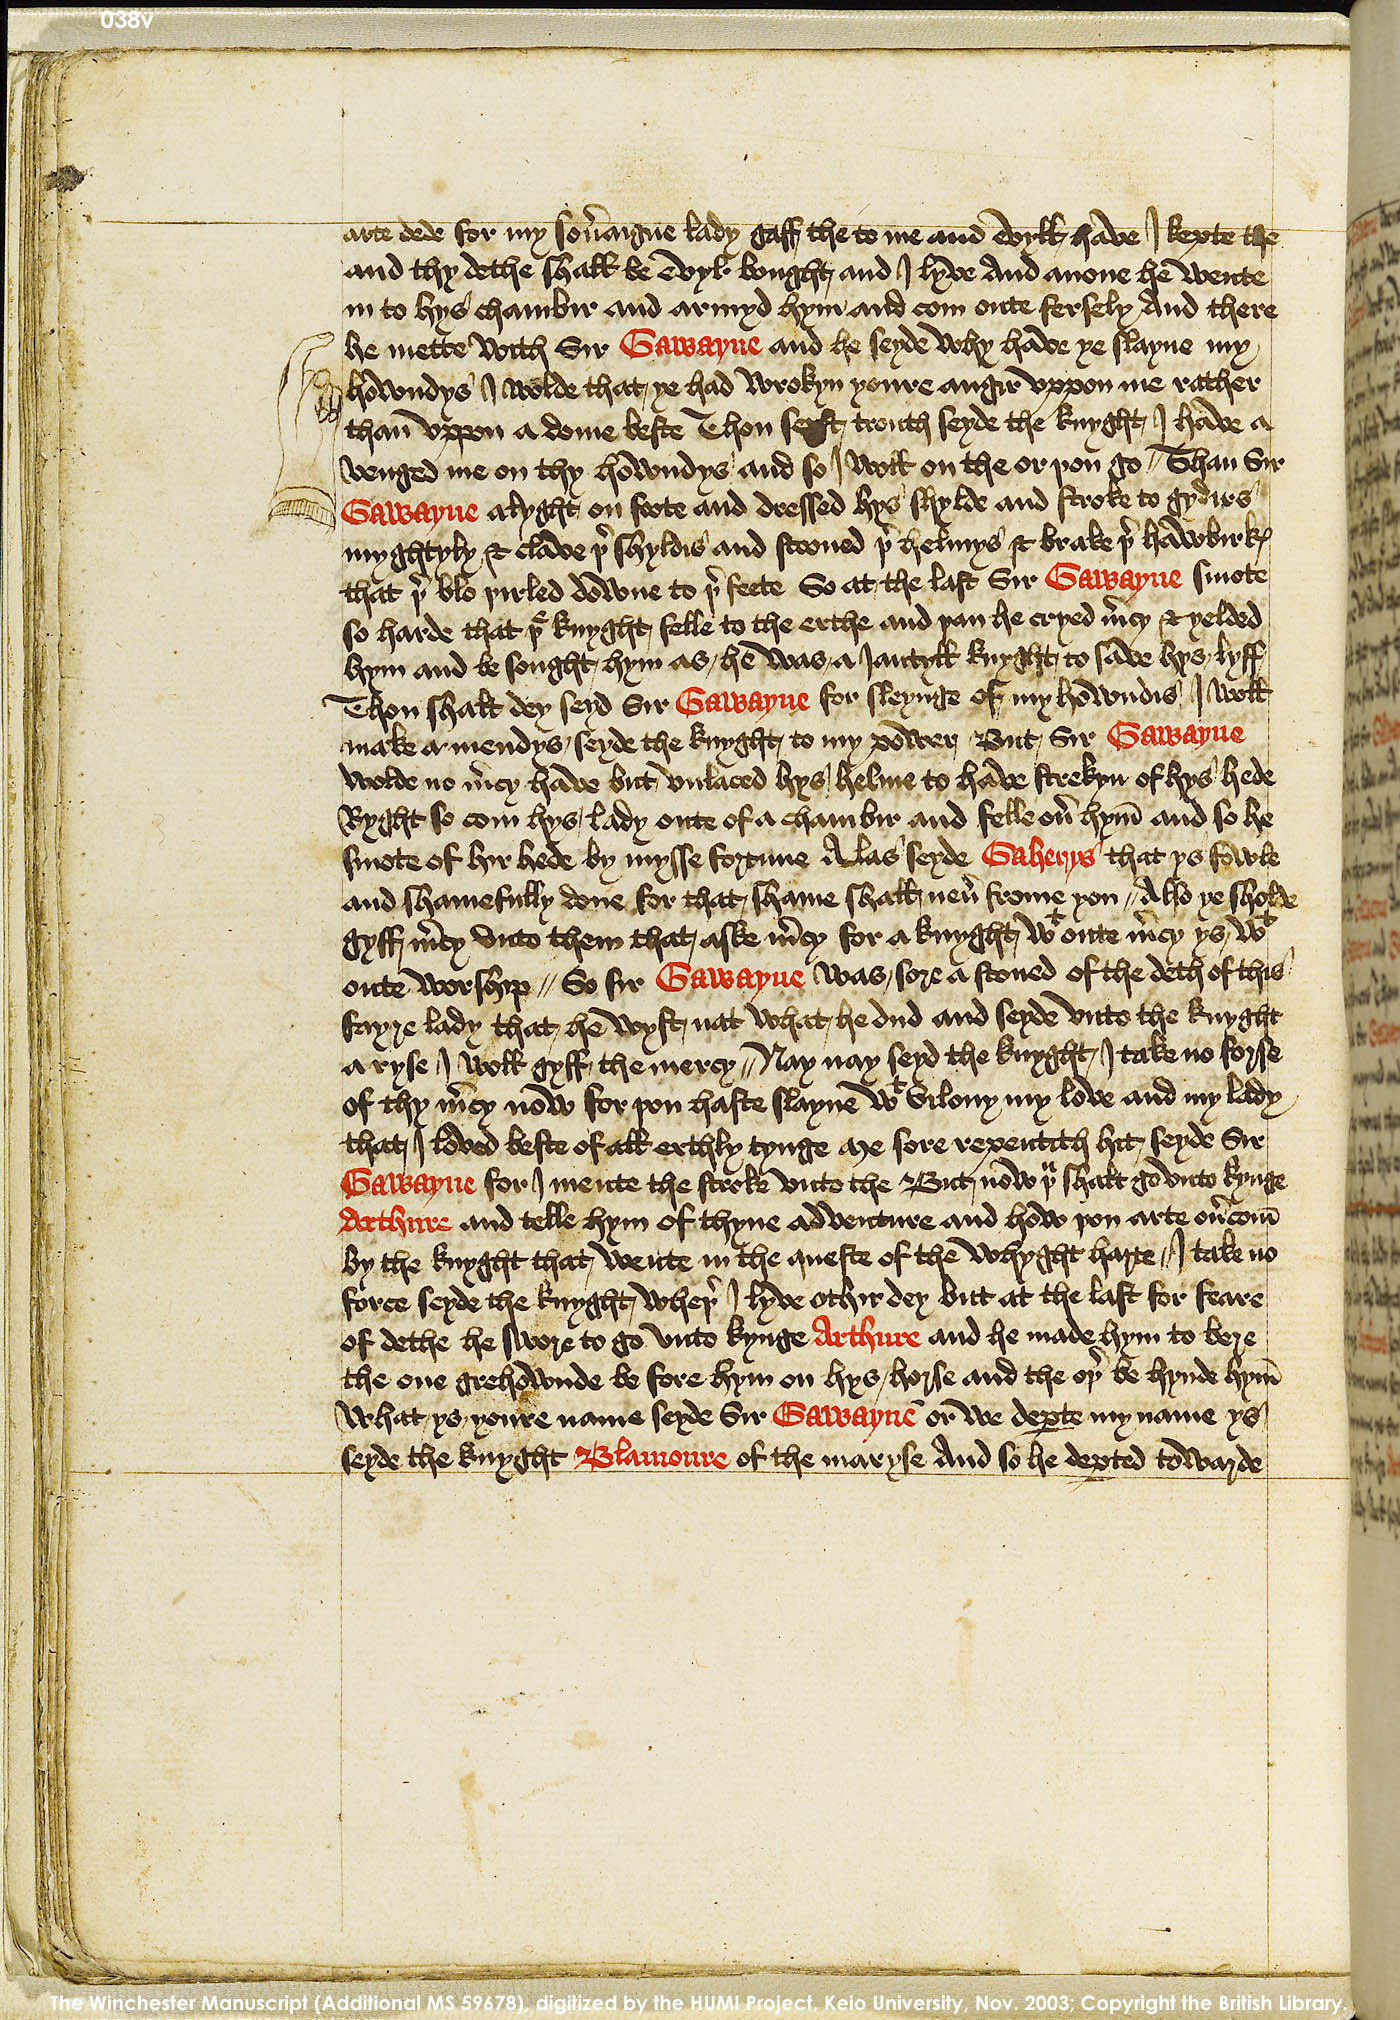 038v
arte dede for my sou̾aigne lady gaff the to me and evyll have I kepte the
and thy dethe shall be evyl bought and I lyve And anone he wente
in to hys chambir and armyd hym and com oute fersely And there
he mette with Sir Gawayne and he seyde why have ye slayne my
howndys I wolde that ye had wrokyn youre angir vppon me rather
than vppon a dome beste Thou seyst trouth seyde the knyght I have a
venged me on thy howndys and so I woll on the or þou go // Than Sir
Gawayne alyght on foote and dressed hys shylde and stroke to gydirs
myghtyly & clave þer shyldis and stooned þer helmys & brake þer hawbirkes
that þer blo þirled downe to þer feete So at the last Sir Gawayne smote
so harde that þe knyght felle to the erthe and þan he cryed m̾cy & yelded
hym and be sought hym as he was a Jantyll knyght to save hys lyff
Thou shalt dey seyd Sir Gawayne for sleynge of my howndis I woll
make a mendys seyde the knyght to my power But Sir Gawayne
wolde no m̾cy have but vnlaced hys helme to have strekyn of hys hede
Ryght so com hys lady oute of a chambir and felle ou̾ hym̄ and so he
smote of hir hede by mysse fortune Alas seyde Gaherys that ys fowle
and shamefully done for that shame shall neu̾ frome you // Also ye sholde
gyff m̾cy vnto them that aske m̾cy for a knyght wt oute m̾cy ys wt
oute worship // So sir Gawayne was sore a stoned of the deth of this
fayre lady that he wyst nat what he dud and seyde vnto the knyght
a ryse I woll gyff the mercy // Nay nay seyd the knyght I take no forse
of thy m̾cy now for þou haste slayne wt vilony my love and my lady
that I loved beste of all erthly tynge Me sore repentith hit seyde Sir
Gawayne for I mente the stroke vnto the But now þu shalt go vnto kynge
Arthure and telle hym of thyne adventure and how þou arte ou̾com̄
by the knyght that wente in the queste of the whyght harte // I take no
force seyde the knyght wheþer I lyve othir dey but at the last for feare
of dethe he swore to go vnto kynge Arthure and he made hym to bere
the one grehownde be fore hym on hys horse and the oþer be hynde hym̄
What ys youre name seyde Sir Gawayne or we dep̱te my name ys
seyde the knyght Blamoure of the maryse And so he dep̱ted towarde
The Winchester Manuscript (Additional MS 59678), digitized by the HUMI Project, Keio University, Nov. 2003; Copyright the British Library.